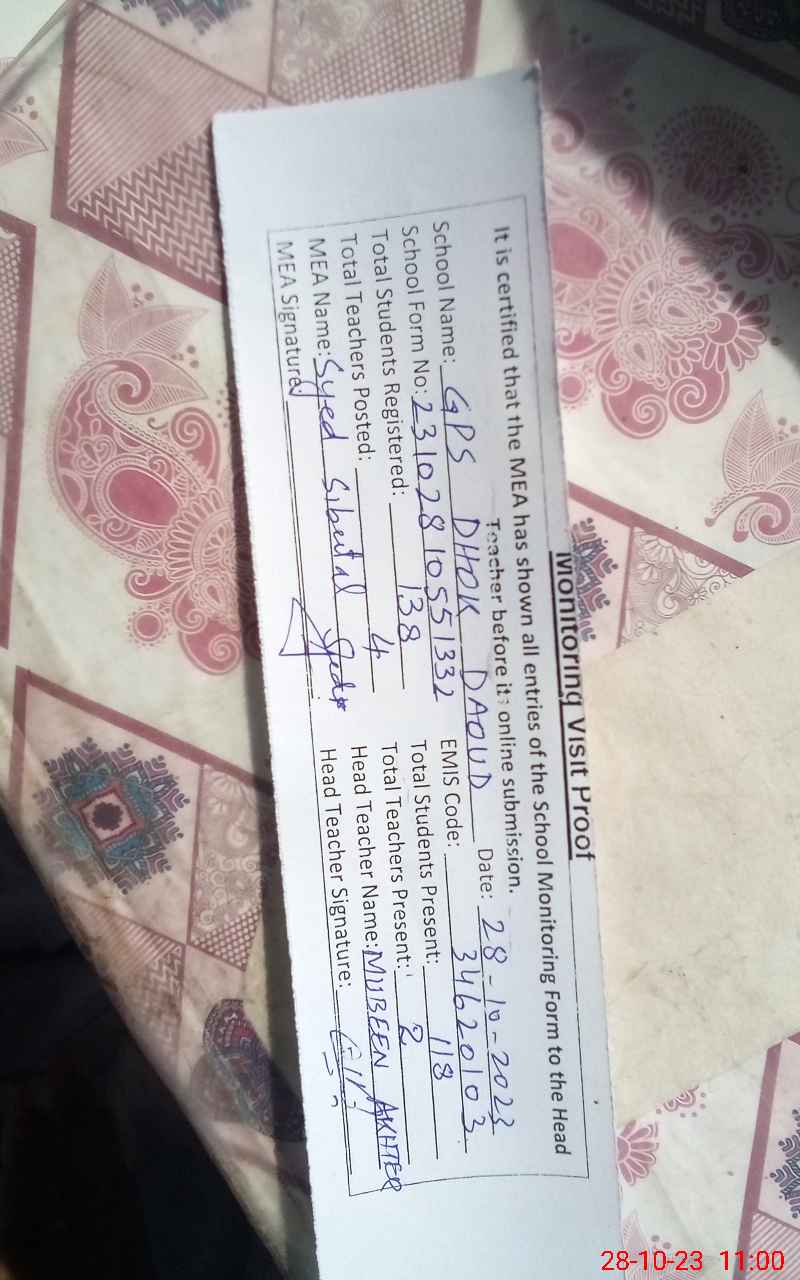 Monitoring Visit Proof
It is certified that the MEA has shown all entries of the School Monitoring Form to the Head
Teacher before its online submission.
Date: 28-10-2023
School Name: GPS DHOK DAOUD EMIS Code: 34620103
School Form No: 23102810551332 Total Students Present: 118
Total Students Registered: 138 Total Teachers Present: 2
Total Teachers Posted: 4 Head Teacher Name: MUBEEN AKHTER
MEA Name: Syed Head Teacher Signature:
MEA Signature
28-10-23 11:00